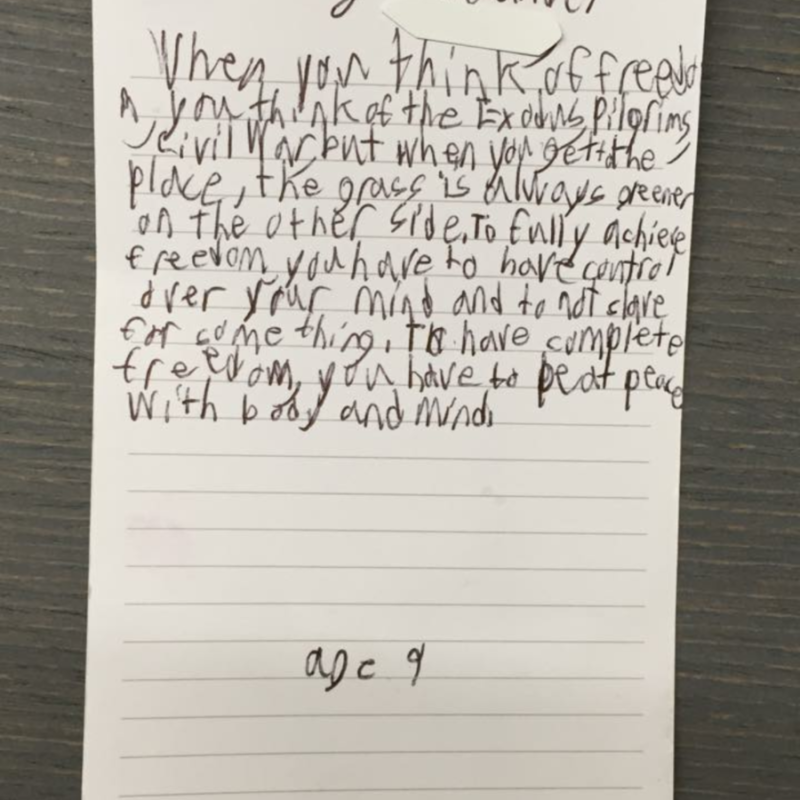 When you think of freedo
m you think of the Exodus, Pilgrims
, Civil War, but when you get to the
place, the grass is always greener
on the other side. To fully achieve
freedom, you have to have control
over your mind and to not slave
for something. To have complete
freedom, you have to be at peace
with body and mind.
age 9